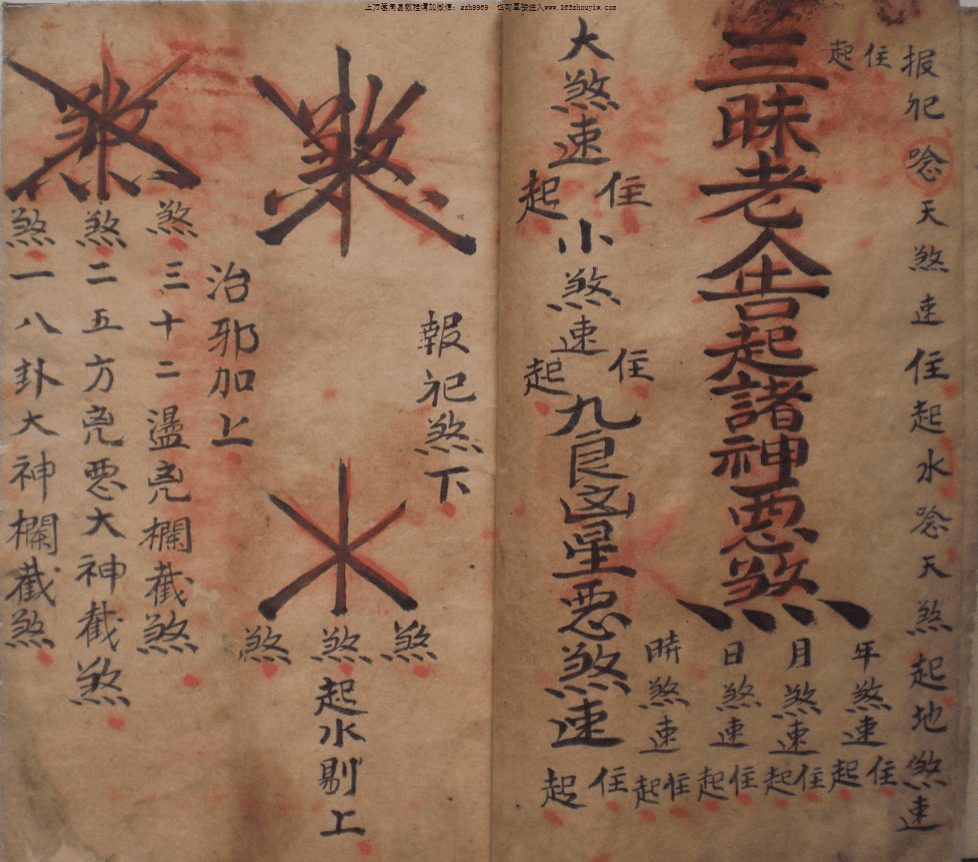 上万套周易教程请加微信：azh9969 也可直接进入www.265zhouyiw.com
报祀唸天煞速住起水唸天煞起地煞速
住起
三昧老人告起諸神惡煞
年煞速住起
月煞速住起
日煞速住起
時煞速住起
大煞速住起小煞速住起九良凶星惡煞速住起
報祀煞下
煞
煞煞煞
起水剔上
治邪加上
煞
煞三十二盪兇欄截煞
煞二五方兇惡大神截煞
煞一八卦大神欄截煞